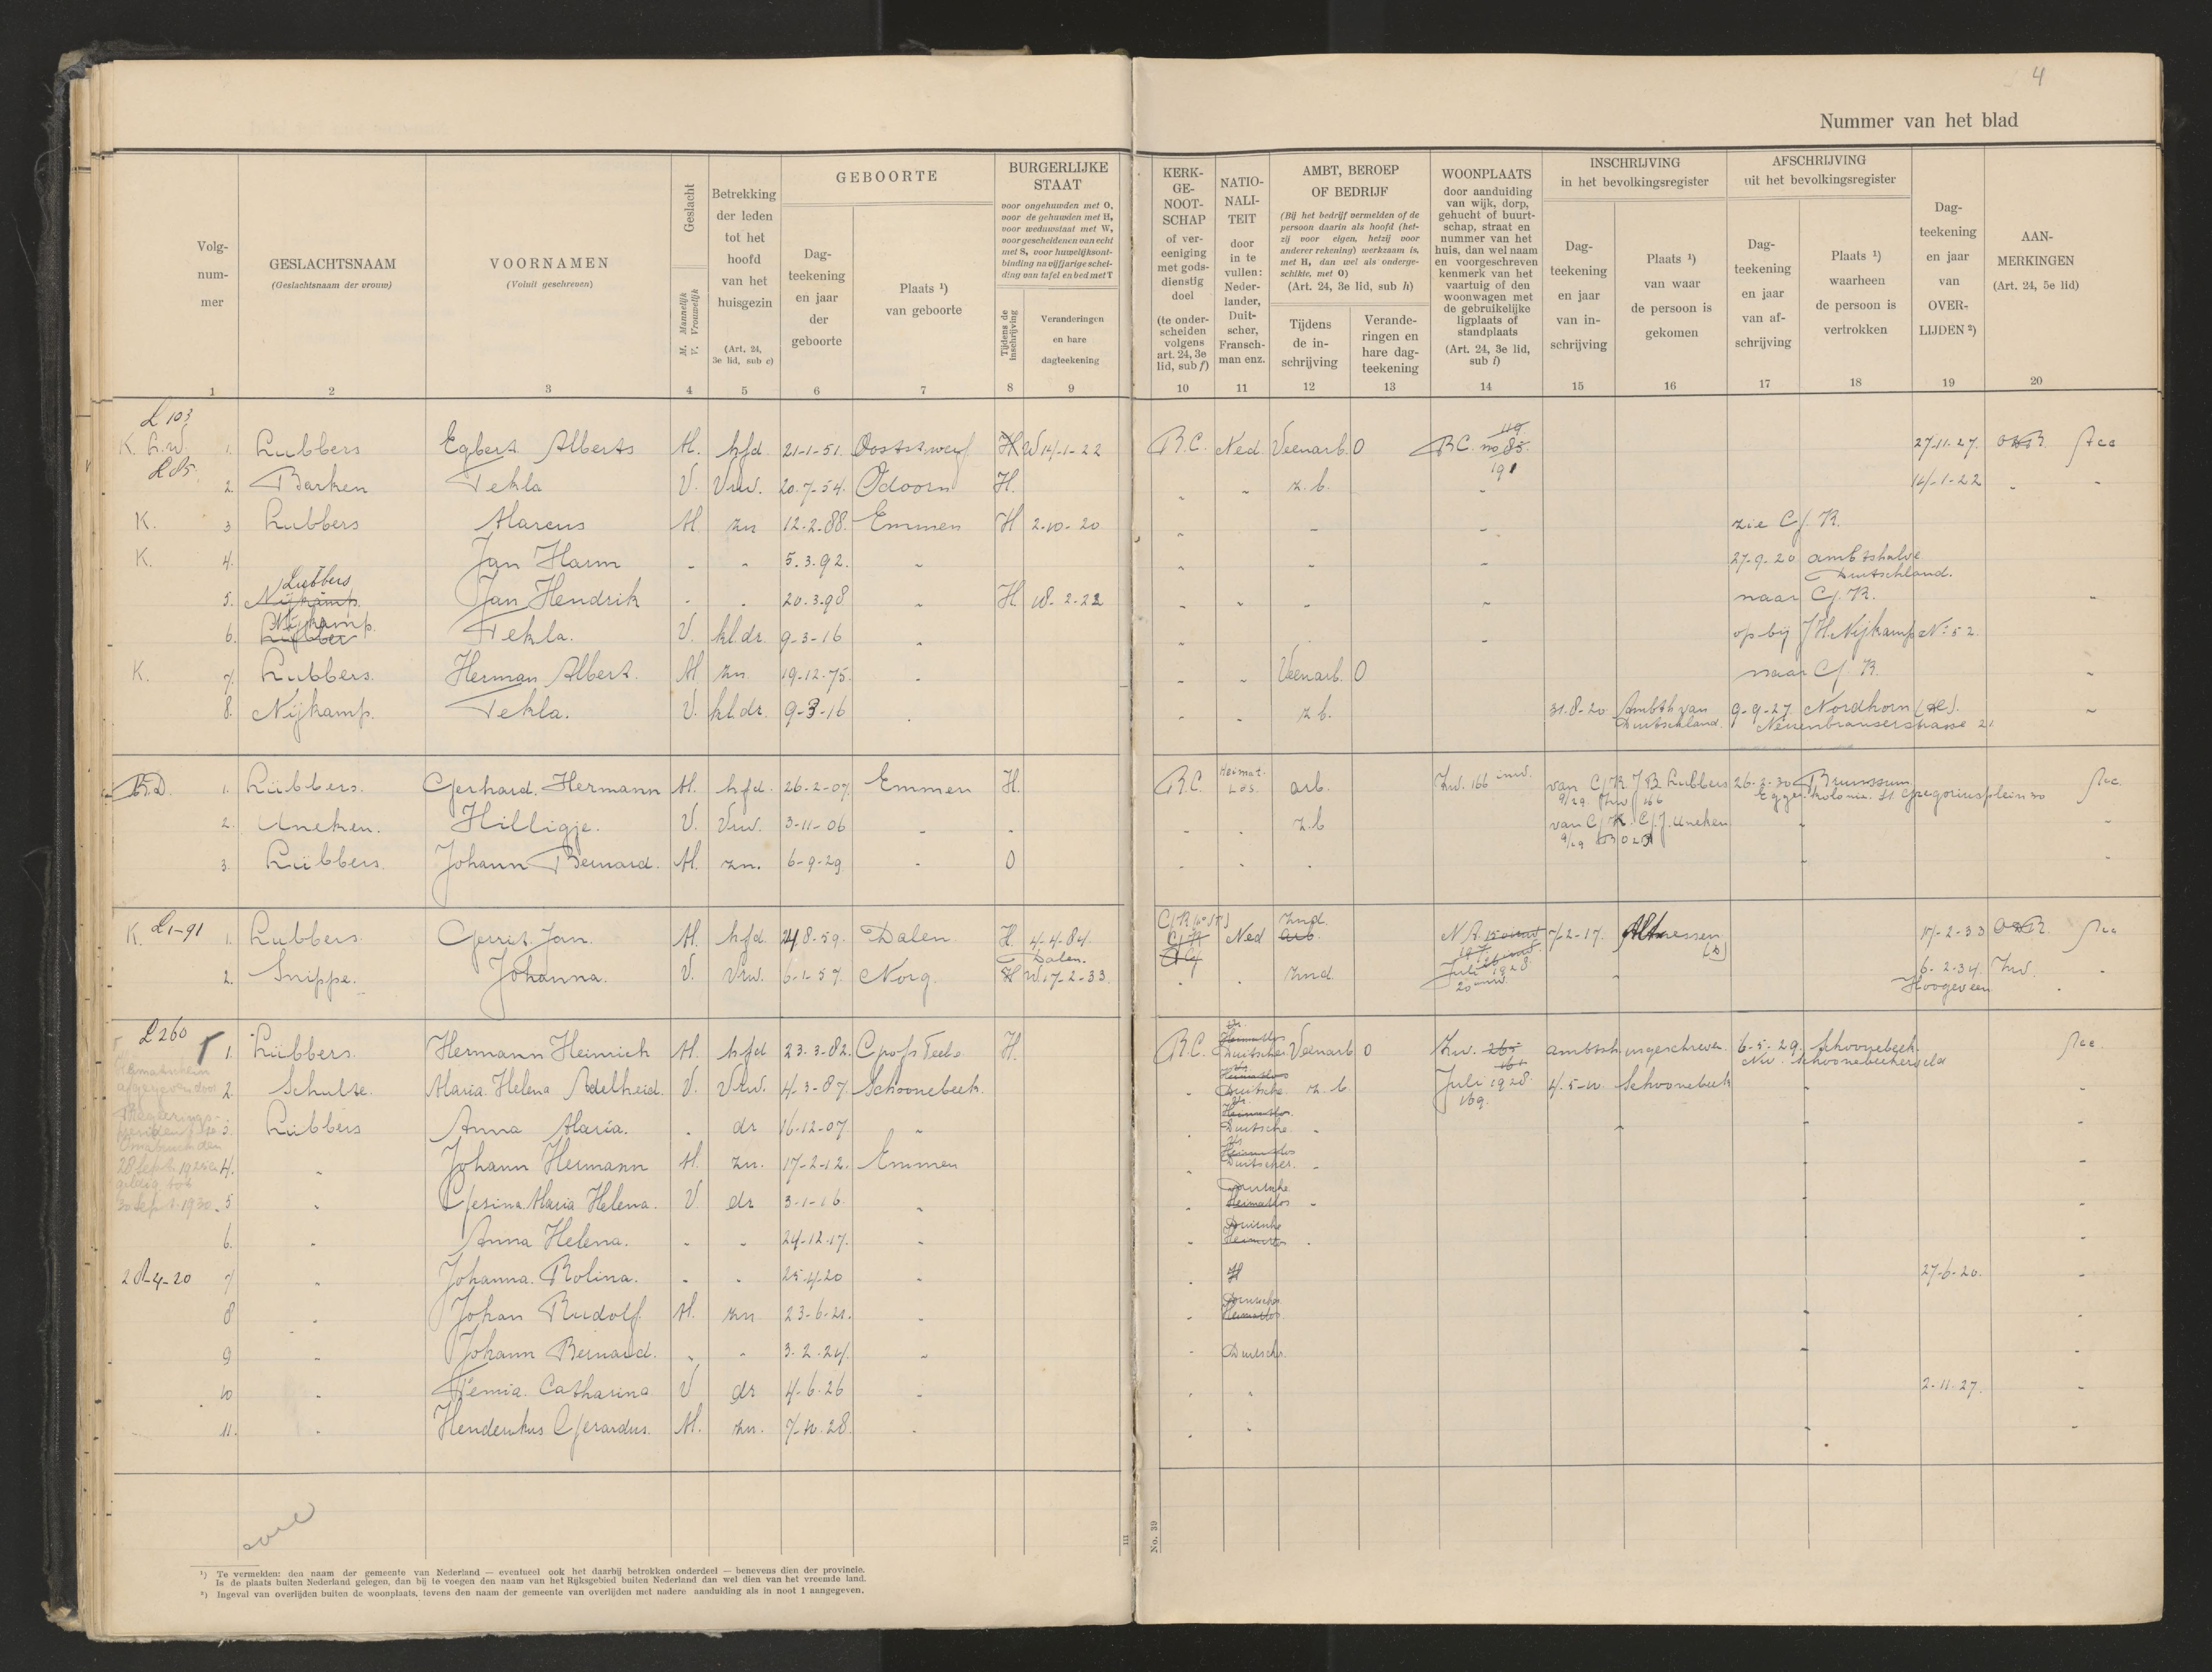 4
Nummer van het blad
Volg-
num-
mer
1
GESLACHTSNAAM
(Geslachtsnaam der vrouw)
2
VOORNAMEN
(Voluit geschreven)
3
Geslacht
M. Mannelijk
V. Vrouwelijk
4
Betrekking
der leden
tot het
hoofd
van het
huisgezin
(Art. 24,
3e lid, sub c)
5
GEBOORTE
Dag-
teekening
en jaar
der
geboorte
6
Plaats ¹)
van geboorte
7
BURGERLIJKE
STAAT
voor ongehuwden met O,
voor de gehuwden met H,
voor weduwstaat met W,
voor gescheidenen van echt
met S, voor huwelijksont-
binding na vijfjarige schei-
ding van tafel en bed met T
Tijdens de
inschrijving
8
Veranderingen
en hare
dagteekening
9
KERK-
GE-
NOOT-
SCHAP
of ver-
eeniging
met gods-
dienstig
doel
(te onder-
scheiden
volgens
art. 24, 3e
lid, sub f)
10
NATIO-
NALI-
TEIT
door
in te
vullen:
Neder-
lander,
Duit-
scher,
Fransch-
man enz.
11
AMBT, BEROEP
OF BEDRIJF
(Bij het bedrijf vermelden of de
persoon daarin als hoofd (het-
zij voor eigen, hetzij voor
anderer rekening) werkzaam is,
met H, dan wel als onderge-
schikte, met O)
(Art. 24, 3e lid, sub h)
Tijdens
de in-
schrijving
12
Verande-
ringen en
hare dag-
teekening
13
WOONPLAATS
door aanduiding
van wijk, dorp,
gehucht of buurt-
schap, straat en
nummer van het
huis, dan wel naam
en voorgeschreven
kenmerk van het
vaartuig of den
woonwagen met
de gebruikelijke
ligplaats of
standplaats
(Art. 24, 3e lid,
sub i)
14
INSCHRIJVING
in het bevolkingsregister
Dag-
teekening
en jaar
van in-
schrijving
15
Plaats ¹)
van waar
de persoon is
gekomen
16
AFSCHRIJVING
uit het bevolkingsregister
Dag-
teekening
en jaar
van af-
schrijving
17
Plaats ¹)
waarheen
de persoon is
vertrokken
18
Dag-
teekening
en jaar
van
OVER-
LIJDEN ²)
19
AAN-
MERKINGEN
(Art. 24, 5e lid)
20
L 103
119
K. 1. Lubbers Egbert Alberts M. hfd. 21-1-51. H W 14-1-22 R.C. Ned. Veenarb. O no 85. 27-11-27.
L 85. 191
2. Barken Tekla V. Vrw. 20-7-54. Odoorn H. " " z.b. " 14-1-22 " "
K. 3 Lubbers Marcus M. zn 12-2-88. Emmen H 2-10-20 " " " zie G.K.
K. 4. Jan Harm " " 5.3.92. " " " " 27-9-20 ambtshalve
Duitschland.
Lubbers
5. Nijkamp. Jan Hendrik " " 20.3.98 H. 18-2-22 " " " " naar G.K. "
Nijkamp.
6. Lubber Tekla. V. kl.dr. 9-3-16 " " " op bij J H Nijkamp No 52.
K. 7. Lubbers. Herman Albert. M zn. 19-12-75. " " " Veenarb. O naar G.K. "
8. Nijkamp. Tekla. V. kl.dr. 9-3-16 " " " z.b. 31-8-20 Ambtsh van 9-9-27 Nordhorn
Duitschland.
1. Lübbers. Gerhard. Hermann M. hfd. 26-2-07. Emmen H. R.C. Heimat-
los arb. 166 inw. van G.K. J B Lubbers 26-2-30 Brunssum
9/29 166 Egge. kolonie. St. Gregoriusplein 30
2. Uneken. Hilligje. V. Vrw. 3-11-06 " " " " z.b van G.K. G.J. Uneken " "
9/29
3. Lübbers. Johann Bernard. M. zn. 6-9-29 " O " " " " "
K. L1-91 1. Lubbers. Gerrit Jan. M. hfd. 8-59. Dalen H. 4-4-84. Ned arb. 7-2-17. Altenessen 17-2-33
Dalen. (D)
2. Snippe. Johanna. V. Vrw. 6-1-57 Norg. H W. 17-2-33. " " Juli 1928 " 6-2-34. "
Hoogeveen
L 260
1. Lübbers. Hermann Heinrich M. hfd 23-3-82. H. R.C. Heimatlos
Duitscher Veenarb O 265 ambtsh ingeschreven 6-5-29. Schoonebeek.
Nw. Schoonebeekerveld
2. Schulte. Maria Helena Adelheid. V. Vrw. 4-3-87. Schoonebeek. " Heimatlos
Duitsche z.b Juli 1928. 4-5-10 Schoonebeek " "
169.
3. Lübbers Anna Maria. " dr 16-12-07 " " Heimatlos
Duitsche " " " "
4. " Johann Hermann M. zn. 17-2-12. Emmen " Heimatlos
Duitscher. " " "
28 Sept. 1925
geldig tot
30 Sept. 1930.
5 " Gesina Maria Helena. V dr 3-1-16 " " Duitsche
Heimatlos " " "
6. " Anna Helena. " " 24-12-17. " " Duitsche
Heimatlos " " "
28-4-20 7 " Johanna. Rolina. " " 25-4-20 " " H 27-6-20. "
8 " Johan Rudolf M. zn 23-6-21. " " Duitscher
Heimatlos " "
9 " Johann Bernard. " " 3-2-24. " " Duitscher. " "
10 " Femia. Catharina V dr 4-6-26 " " " 2-11-27. "
11. " Henderikus Gerardus. M. zn. 7-10-28. " " " " "
III
No. 39
¹) Te vermelden: den naam der gemeente van Nederland — eventueel ook het daarbij betrokken onderdeel — benevens dien der provincie.
Is de plaats buiten Nederland gelegen, dan bij te voegen den naam van het Rijksgebied buiten Nederland dan wel dien van het vreemde land.
²) Ingeval van overlijden buiten de woonplaats, tevens den naam der gemeente van overlijden met nadere aanduiding als in noot 1 aangegeven.